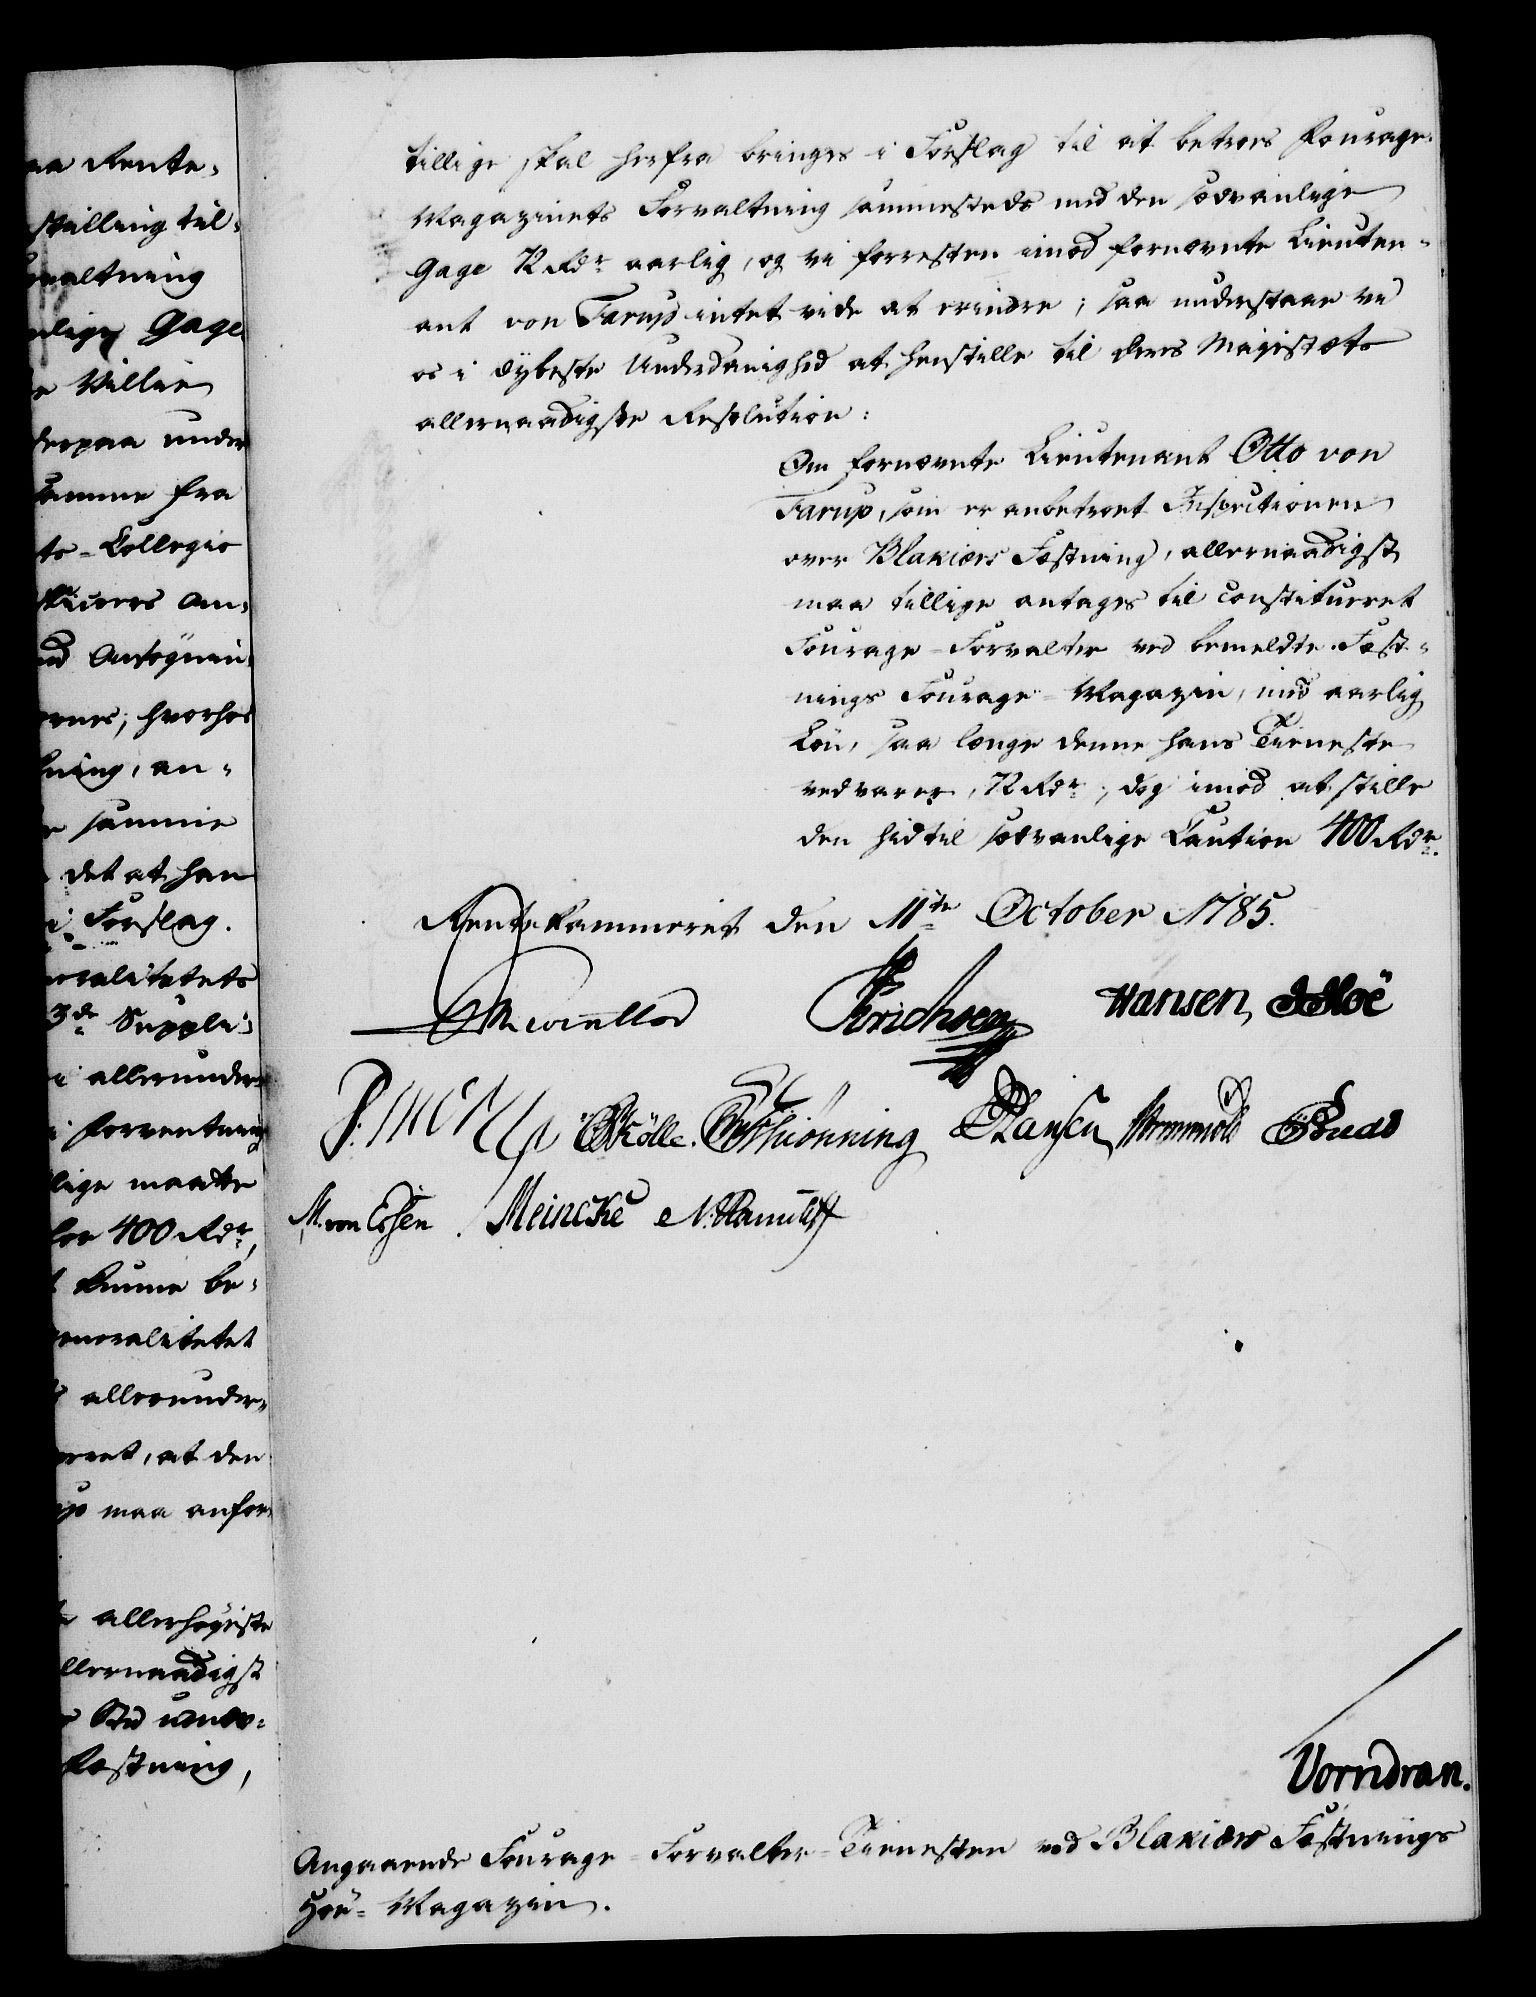 aa Rente-
stilling til-
rvaltning
nlige Gage
e Villie
derpaa under
samme fra
ts-Collegio
Skiærs An-
ed Ansøgnin-
ernes, hvorhos
ning, an-
e samme
det at han
i Forslag.
neralitetets
3de Suppli-
i allerunder-
i forventning
lige maatte
for 400 Rdr,
kunne be-
eneralitetet
allerunder-
eret, at den
up maa anfor-
allerhøyeste
llernaadigst
Fæstning,
tillige skal herfra bringes i Forslag til at betroes Fourage-
Magazinets Forvaltning sammesteds med den sædvanlige
Gage 72 Rdr aarlig, og vi forresten imod fornævnte Lieuten-
ant von Tarup intet vide at erindre; saa understaae vi
os i dybeste Underdanighed at henstille til Deres Majestæts
allernaadigste Resolution:
Om fornævnte Lieutenant Otto von
Tarup, som er anbetroet Inspectionen
over Blakiers Fæstning, allernaadigst
maa tillige antages til constitueret
Fourage-Forvalter ved bemeldte Fæst-
nings Fourage-Magazin, med aarlig
Løn, saa længe denne hans Tieneste
vedvarer, 72 Rdr, dog imod at stille
den hidtil sædvanlige Caution 400 Rdr.
Rentekammeret den 11te October 1785.
Hansen,
Mölle. Schiønning Hansen
M. von Essen. Meincke
Vorndran.
Angaaende Fourage-Forvalter-Tienesten ved Blakiærs Fæstnings
Høe-Magazin.